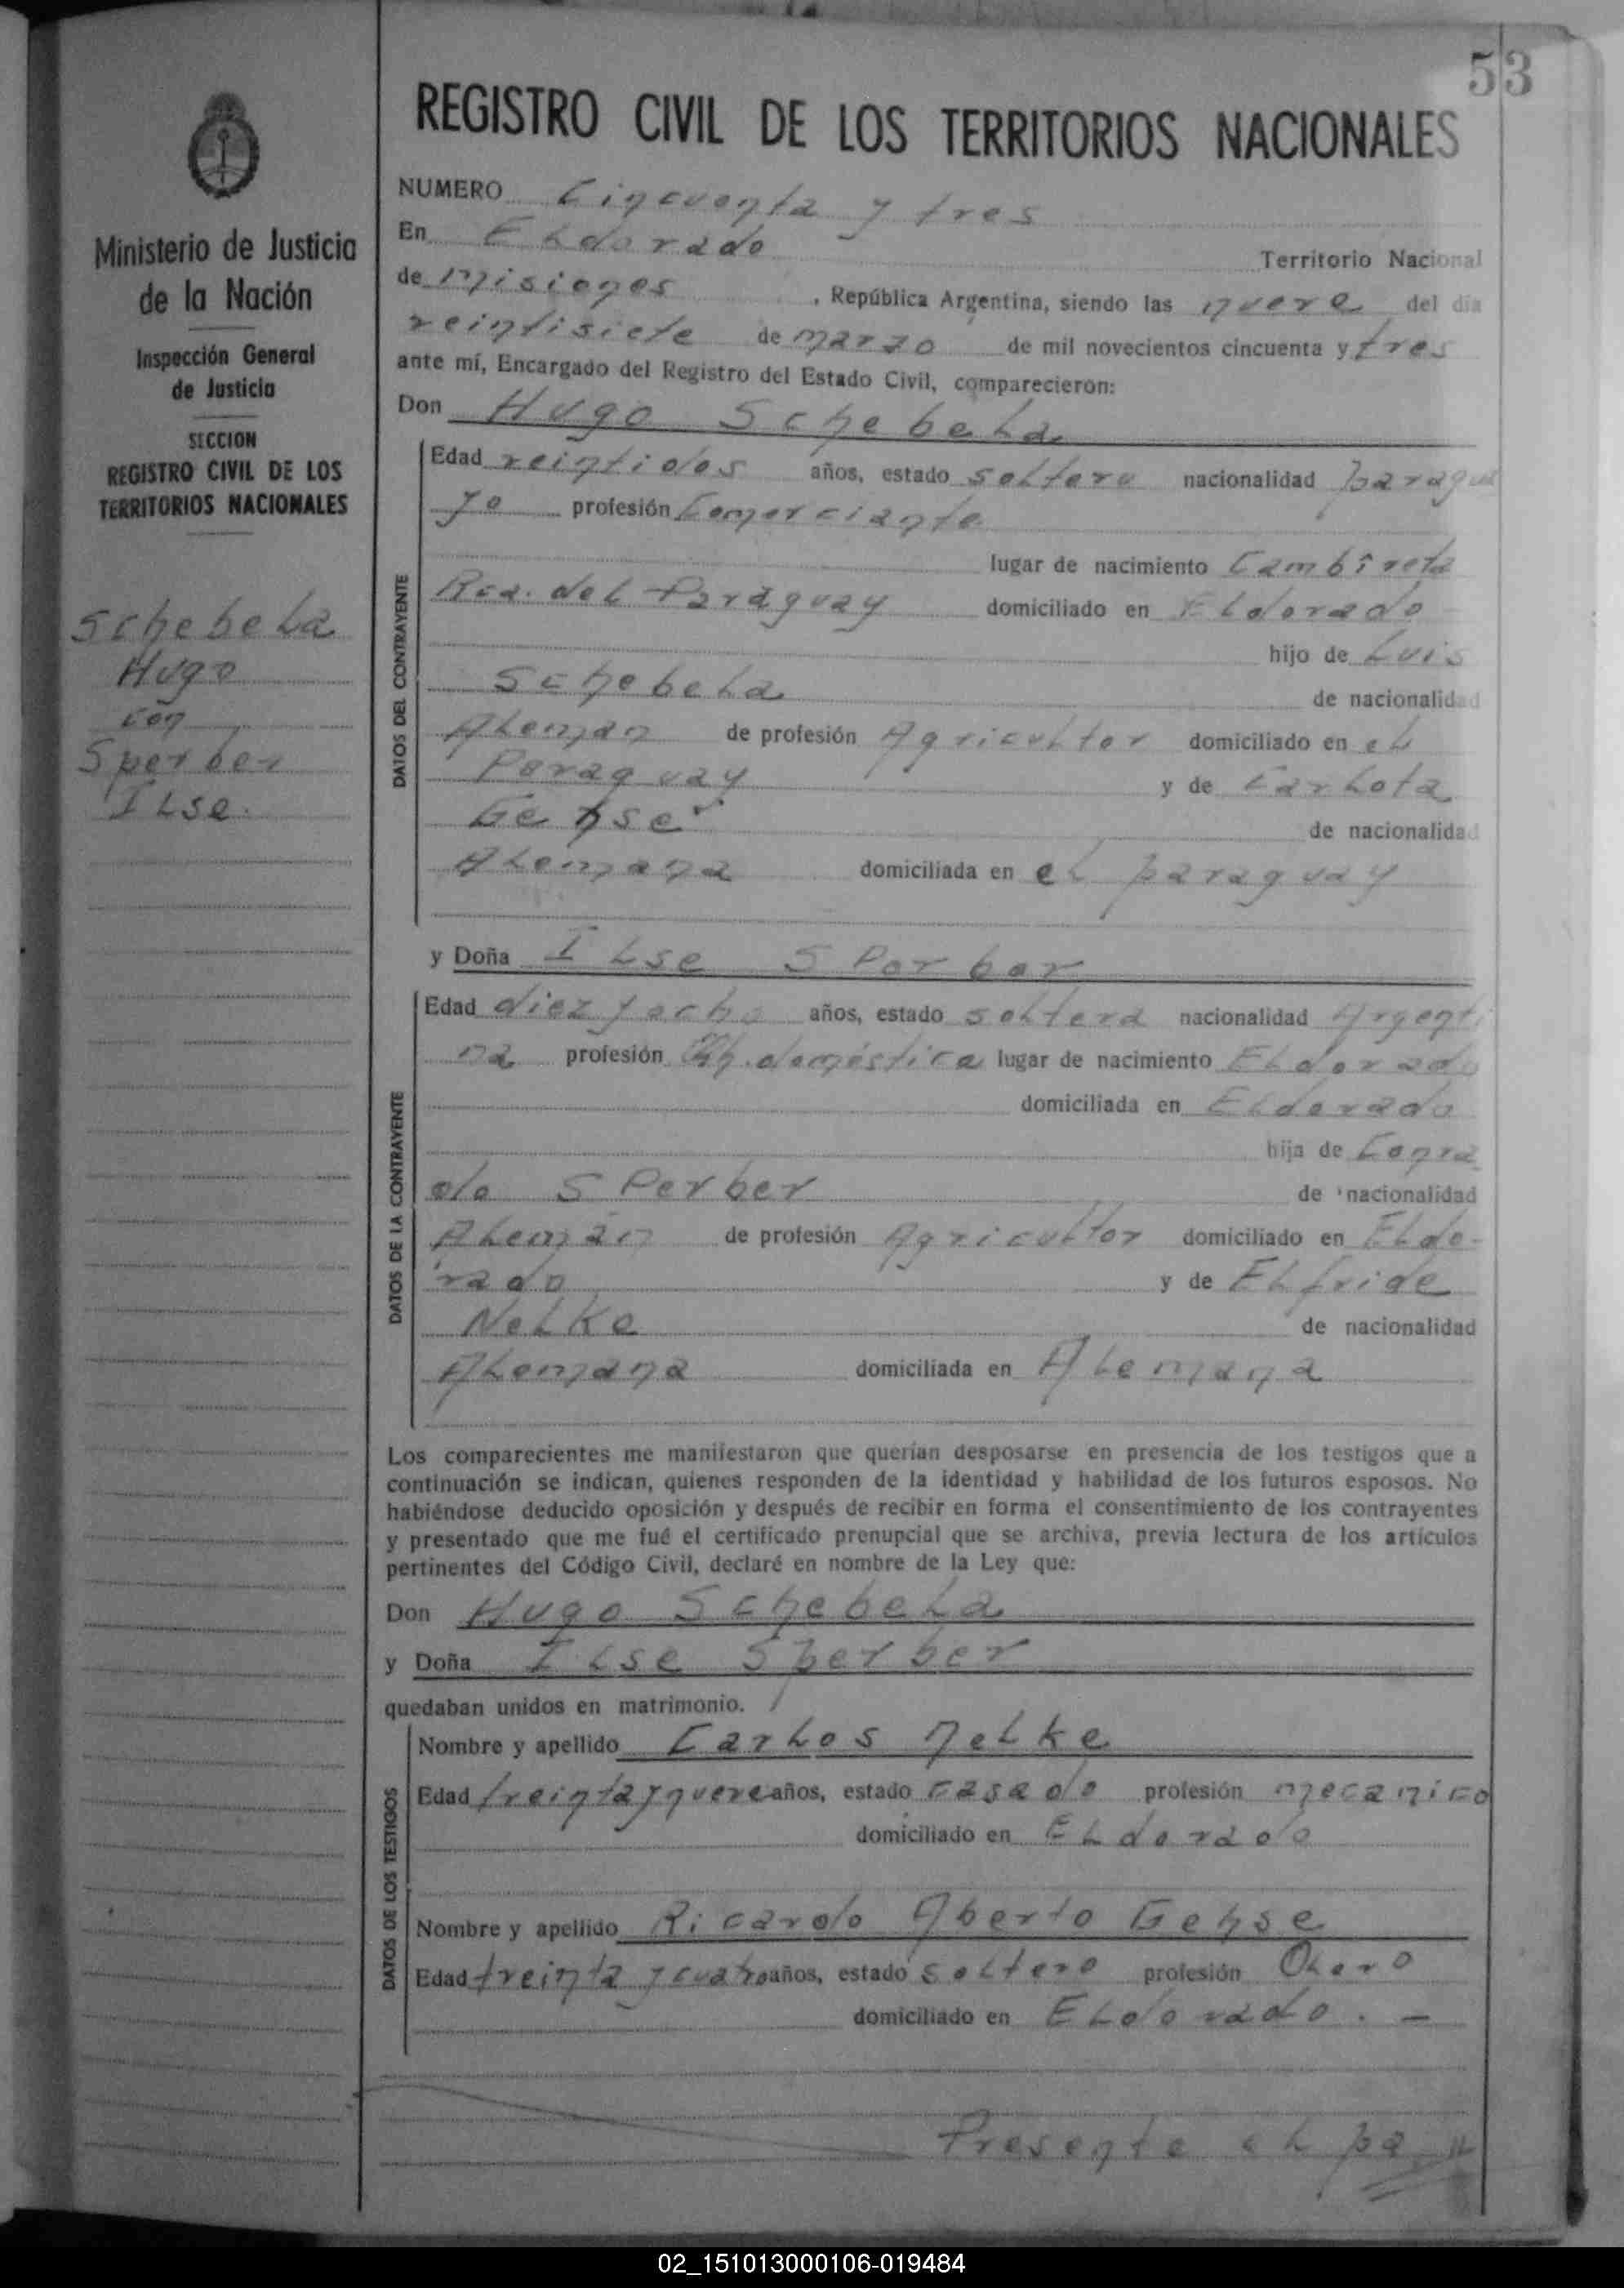 53
REGISTRO CIVIL DE LOS TERRITORIOS NACIONALES
Ministerio de Justicia
de la Nación
Inspección General
de Justicia
SECCION
REGISTRO CIVIL DE LOS
TERRITORIOS NACIONALES
Schebela
Hugo
con
Sperber
Ilse.
NUMERO Cincuenta y tres
En Eldorado Territorio Nacional
de Misiones , República Argentina, siendo las nueve del día
veintisiete de marzo de mil novecientos cincuenta y tres
ante mí, Encargado del Registro del Estado Civil, comparecieron:
Don Hugo Schebela
DATOS DEL CONTRAYENTE
Edad veintidos años, estado soltero nacionalidad paragua
yo profesión Comerciante
lugar de nacimiento Cambireta
Rca. del Paraguay domiciliado en Eldorado
hijo de Luis
Schebela de nacionalidad
Aleman de profesión Agricultor domiciliado en el
Paraguay y de Carlota
Gehse de nacionalidad
Alemana domiciliada en el paraguay
y Doña Ilse Sperber
DATOS DE LA CONTRAYENTE
Edad diez y ocho años, estado soltera nacionalidad Argenti
na profesión doméstica lugar de nacimiento Eldorado
domiciliada en Eldorado
hija de Conra
do Sperber de nacionalidad
Alemán de profesión Agricultor domiciliado en Eldo-
rado y de Elfride
Nelke de nacionalidad
Alemana domiciliada en Alemana
Los comparecientes me manifestaron que querían desposarse en presencia de los testigos que a
continuación se indican, quienes responden de la identidad y habilidad de los futuros esposos. No
habiéndose deducido oposición y después de recibir en forma el consentimiento de los contrayentes
y presentado que me fué el certificado prenupcial que se archiva, previa lectura de los artículos
pertinentes del Código Civil, declaré en nombre de la Ley que:
Don Hugo Schebela
y Doña Ilse Sperber
quedaban unidos en matrimonio.
DATOS DE LOS TESTIGOS
Nombre y apellido Carlos Nelke
Edad treinta y nueve años, estado casado profesión mecanico
domiciliado en Eldorado
Nombre y apellido Ricardo Aberto Gehse
Edad treinta y cuatro años, estado soltero profesión Obrero
domiciliado en Eldorado. -
Presente el pa
02_151013000106-019484